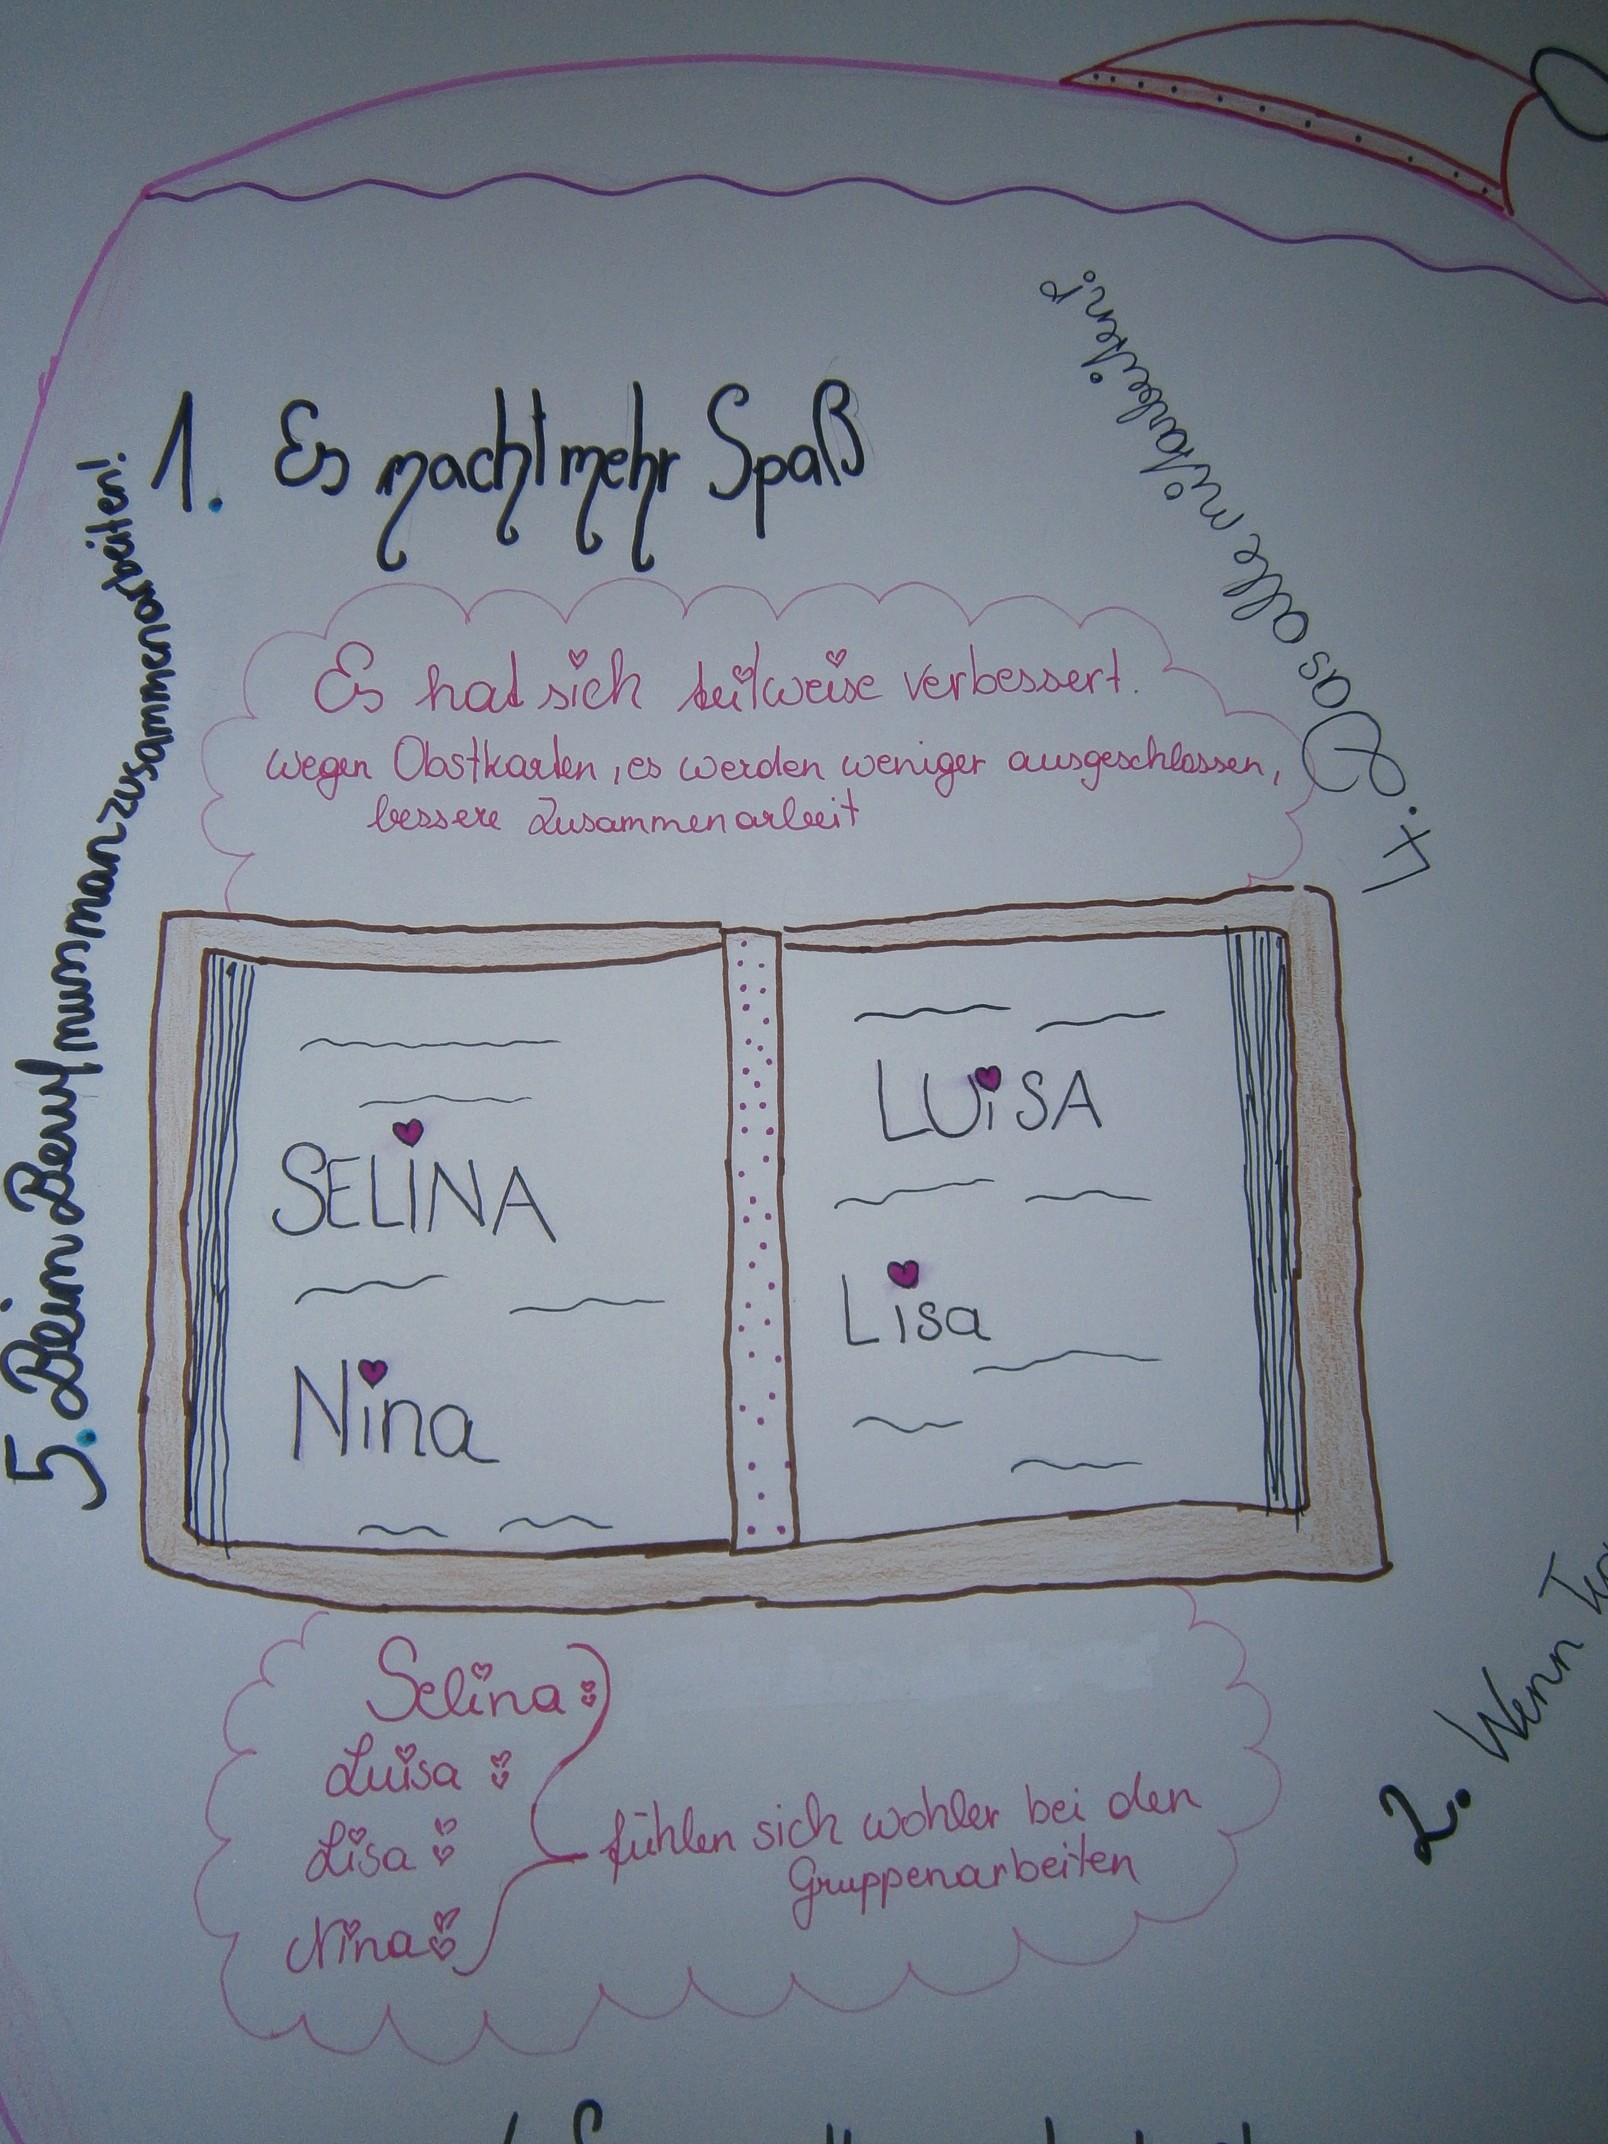 1. Es macht mehr Spaß
4. Das alle mitarbeiten?
5. Beim Beruf muss man zusammenarbeiten!
Es hat sich teilweise verbessert.
wegen Obstkarten, es werden weniger ausgeschlossen,
bessere Zusammenarbeit
SELiNA
Nina
LUiSA
Lisa
Selina:
Luisa:
Lisa:
Nina:
fühlen sich wohler bei den
Gruppenarbeiten
2. Wenn